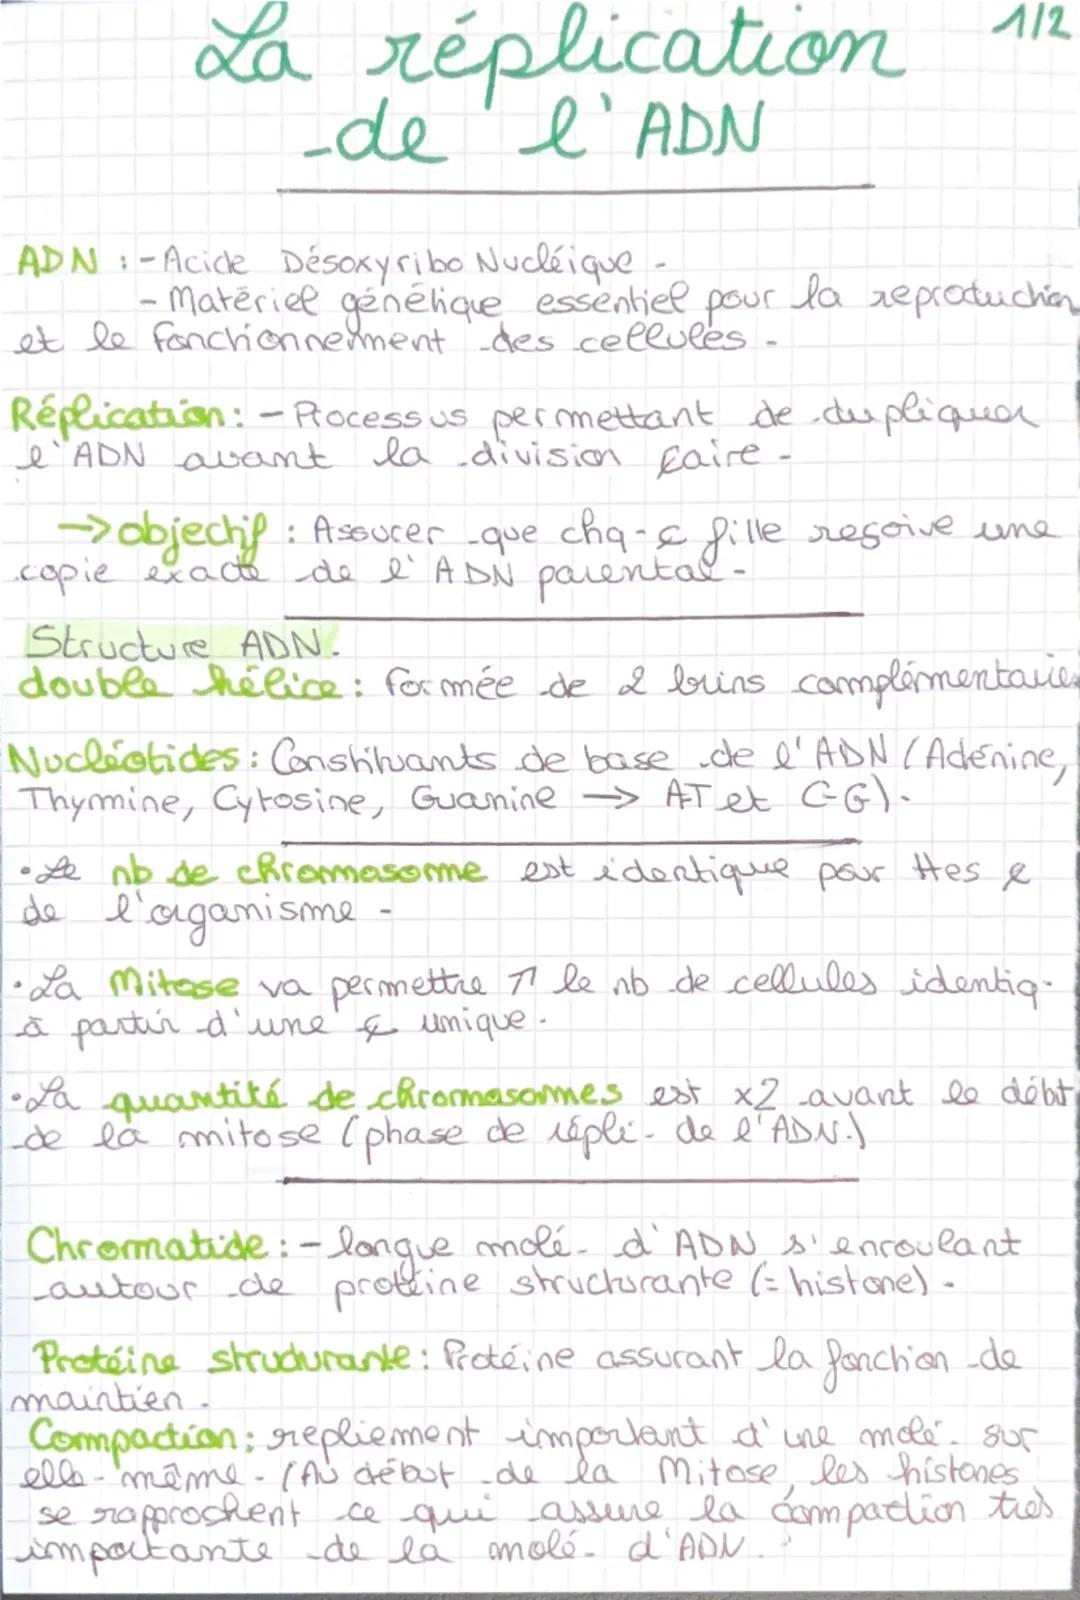 La réplication 1/2
de l'ADN
ADN : - Acide DésoxyriboNucléique.
- Matériel génétique essentiel pour la reproduction
et le fonctionnement des cellules.
Réplication: - Processus permettant de dupliquer
l'ADN avant la division faire.
→ objectif : Assurer que chq. ¢ fille reçoive une
copie exacte de l'ADN parental.
Structure ADN.
double hélice : formée de 2 brins complémentaires
Nucléotides : Constituants de base de l'ADN (Adénine,
Thymine, Cytosine, Guanine → A-T et C-G).
• Le nb de chromosome est identique pour ttes ¢
de l'organisme.
• La Mitose va permettre ↗ le nb de cellules identiq.
à partir d'une ¢ unique.
• La quantité de chromosomes est x2 avant le débt
de la mitose (phase de répli. de l'ADN.)
Chromatide : - longue molé. d'ADN s'enroulant
autour de protéine structurante (= histone).
Protéine structurante : Protéine assurant la fonction de
maintien.
Compaction : repliement important d'une molé. sur
elle-même. (Au début de la Mitose, les histones
se rapprochent ce qui assure la compaction très
importante de la molé. d'ADN.